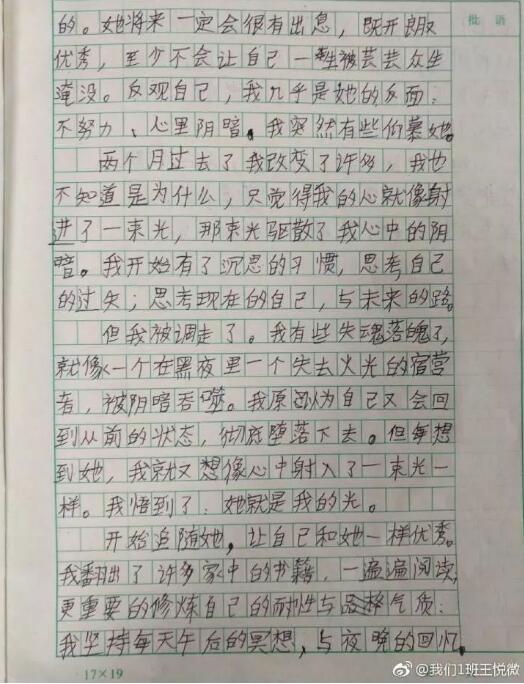 批 语
的。她将来一定会很有出息，既开朗又
优秀，至少不会让自己一生被芸芸众生
淹没。反观自己，我几乎是她的反面：
不努力、心里阴暗。我突然有些仰慕她。
两个月过去了我改变了许多，我也
不知道是为什么，只觉得我的心就像射
进了一束光，那束光驱散了我心中的阴
暗。我开始有了沉思的习惯，思考自己
的过失；思考现在的自己，与未来的路。
但我被调走了。我有些失魂落魄了，
就像一个在黑夜里一个失去火光的宿营
者，被阴暗吞噬。我原因认为自己又会回
到从前的状态，彻底堕落下去。但每想
到她，我就又想像心中射入了一束光一
样。我悟到了：她就是我的光。
开始追随她，让自己和她一样优秀。
我翻出了许多家中的书籍，一遍遍阅读，
更重要的修炼自己的耐性与品格气质：
我坚持每天午后的冥想，与夜晚的回忆。
17×19
@我们1班王悦微